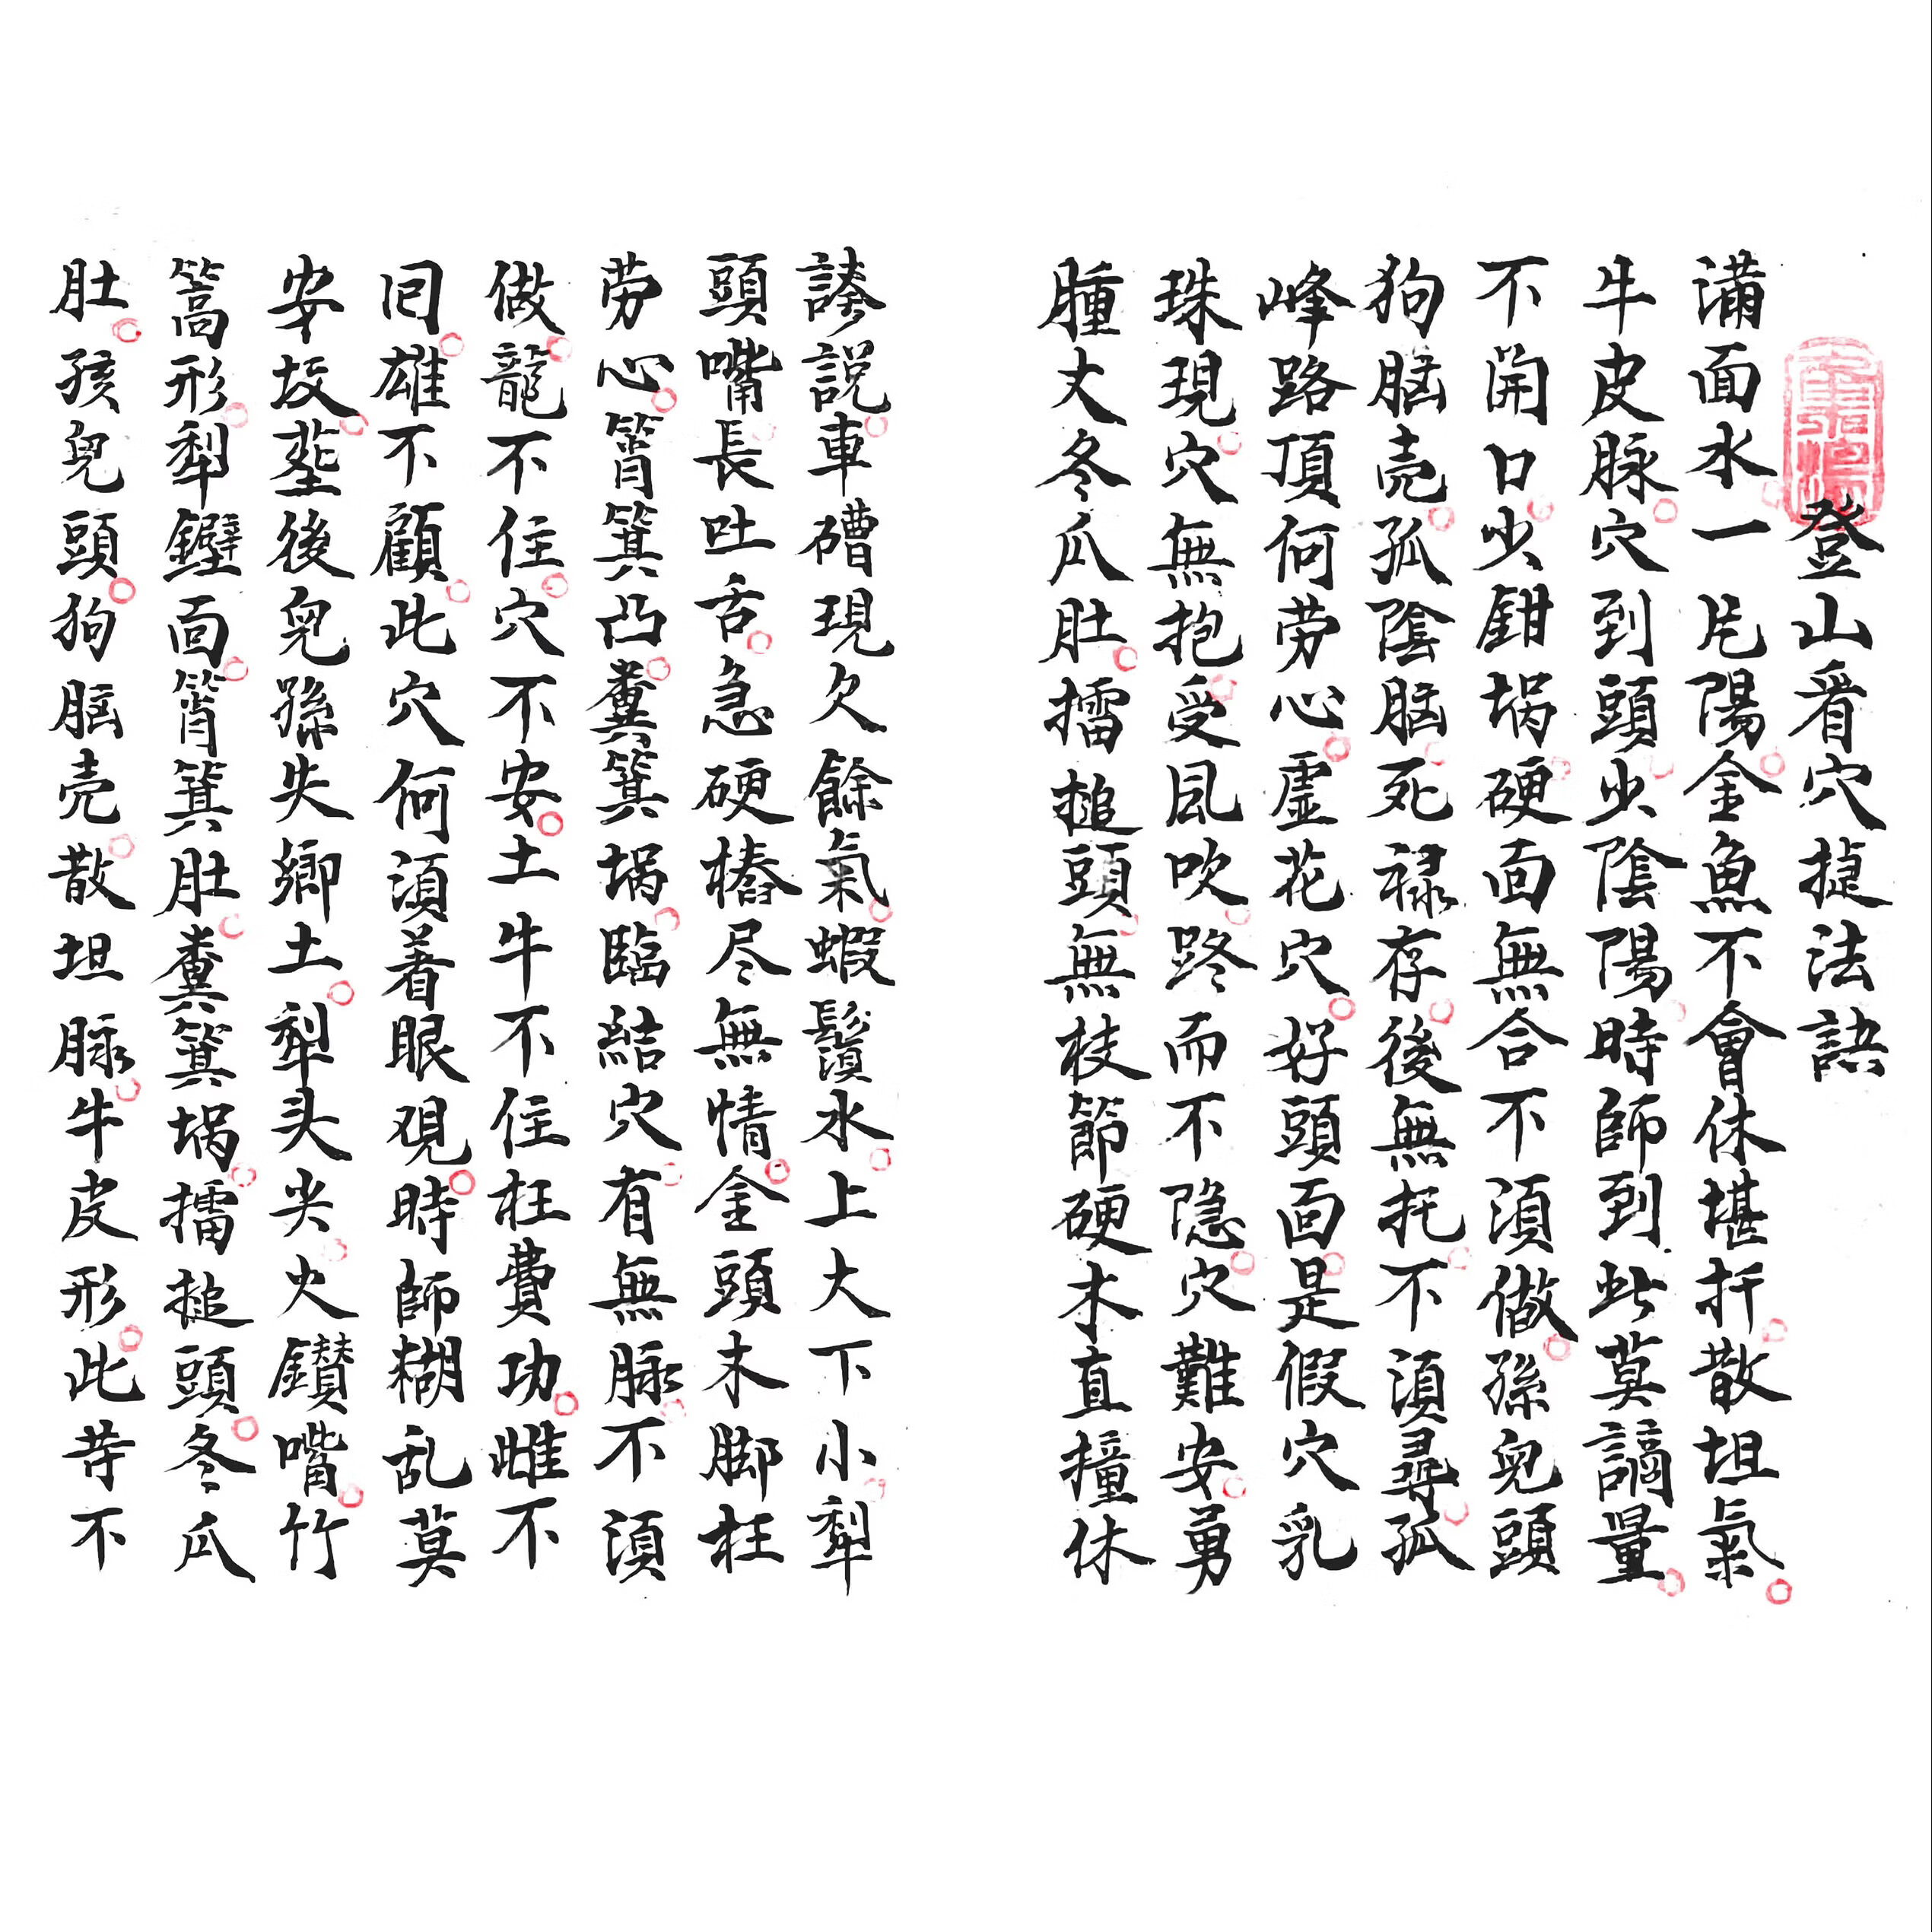 登山看穴捷法訣
滿面水一片陽金魚不會休堪折散坦氣
牛皮脉穴到頭少陰陽時師到此莫謫量
不開口少鉗堝硬面無合不須做孫兒頭
狗脳壳孤陰脳死祿存後無托不須尋孤
峰路頂何劳心虛花穴好頭面是假穴乳
珠現穴無抱受風吹跨而不隐穴難安勇
腫丈冬瓜肚擂槌頭無枝節硬木直撞休
誇説車磳現欠餘氣蝦鬚水上大下小犁
頭嘴長吐舌急硬樁尽無情金頭木脚枉
劳心筲箕凸糞箕堝臨結穴有無脉不須
做龍不住穴不安土牛不住枉費功雌不
囘雄不顧此穴何須着眼观時師糊乱莫
安坟塟後兒孫失鄉土犁头尖火鑽嘴竹
篙形犁鐴面筲箕肚糞箕堝擂槌頭冬瓜
肚孩兒頭狗脳壳散坦脉牛皮形此苛不